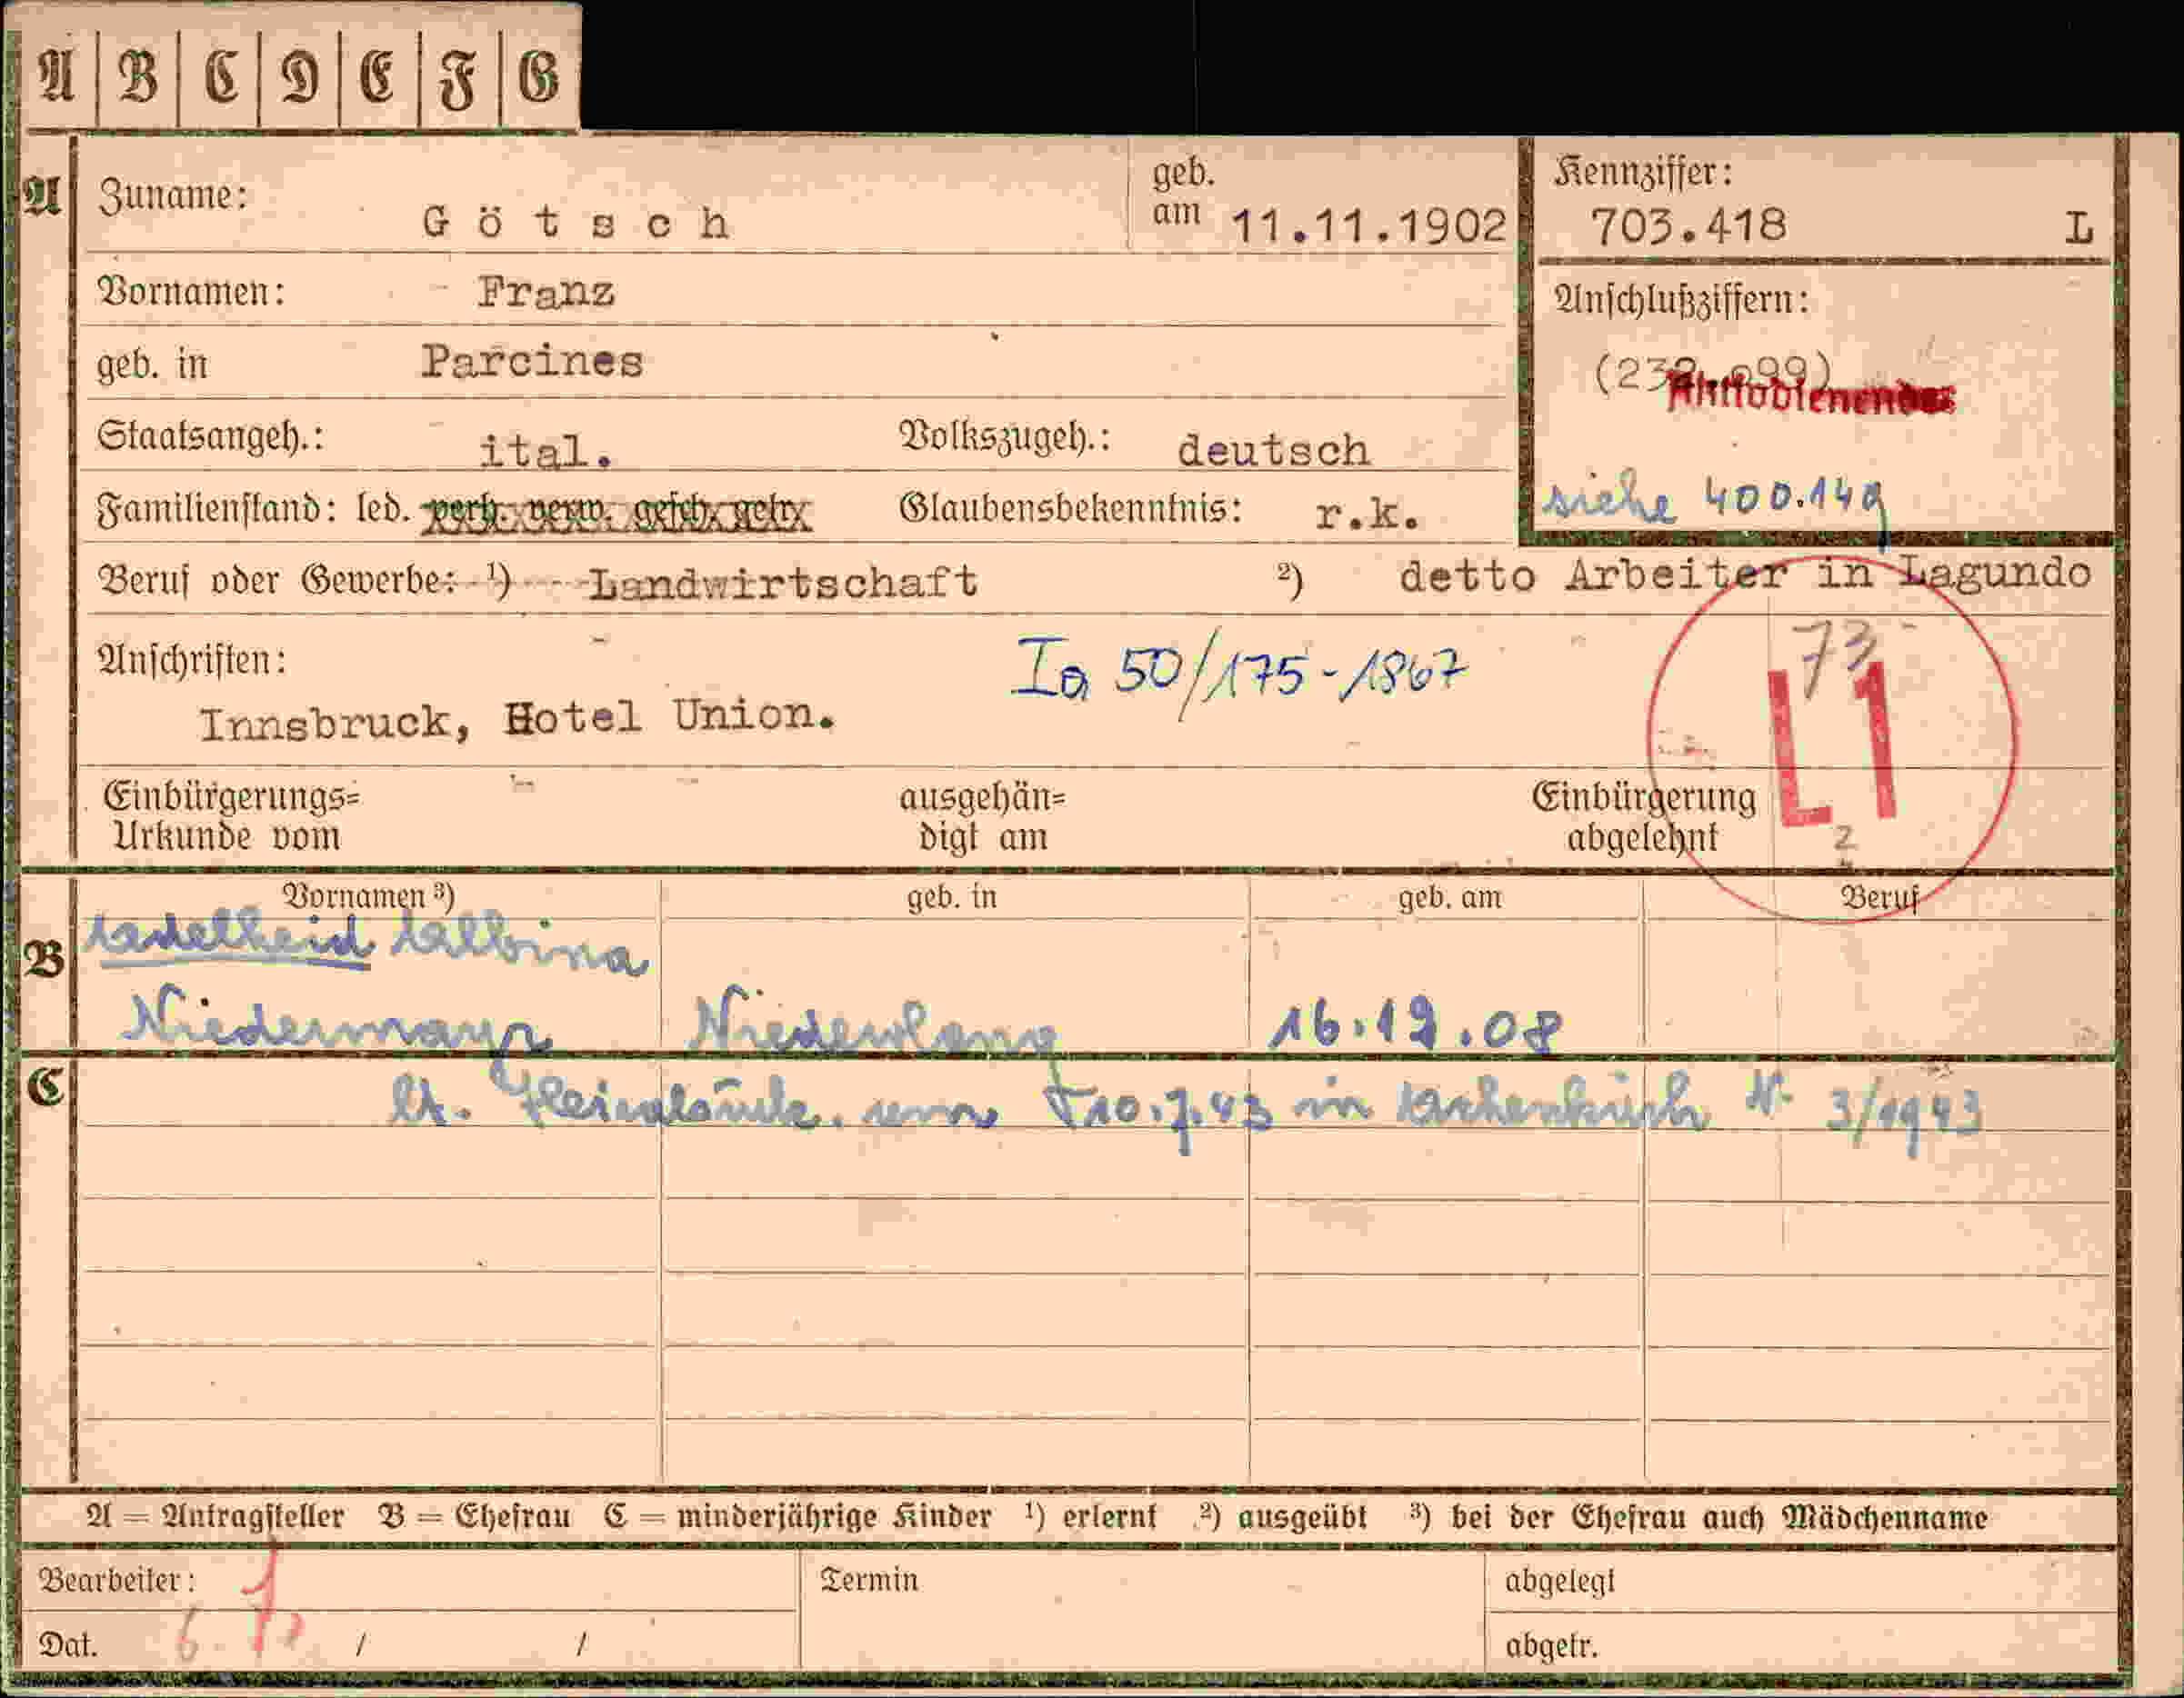 A B C D E F G
A
Zuname: Götsch
geb. am 11.11.1902
Kennziffer:
703.418 L
Vornamen: Franz
Anschlußziffern:
geb. in Parcines
Aktivdienender
Staatsangeh.: ital. Volkszugeh.: deutsch
siehe 400.149
Familienstand: led. verh. verw. gesch. getr. Glaubensbekenntnis: r.k.
Beruf oder Gewerbe: ¹) Landwirtschaft ²) detto Arbeiter in Lagundo
Anschriften: Ia 50/175-1867
73
Innsbruck, Hotel Union.
L1
Einbürgerungs=
Urkunde vom
ausgehän=
digt am
Einbürgerung
abgelehnt
2
Vornamen ³) geb. in geb. am Beruf
B
Adelheid Albina
Niedermayr 16.12.08
C
lt. 10.7.43 in Nr. 3/1943
A = Antragsteller B = Ehefrau C = minderjährige Kinder ¹) erlernt ²) ausgeübt ³) bei der Ehefrau auch Mädchenname
Bearbeiter:
Termin
abgelegt
Dat. / /
abgetr.